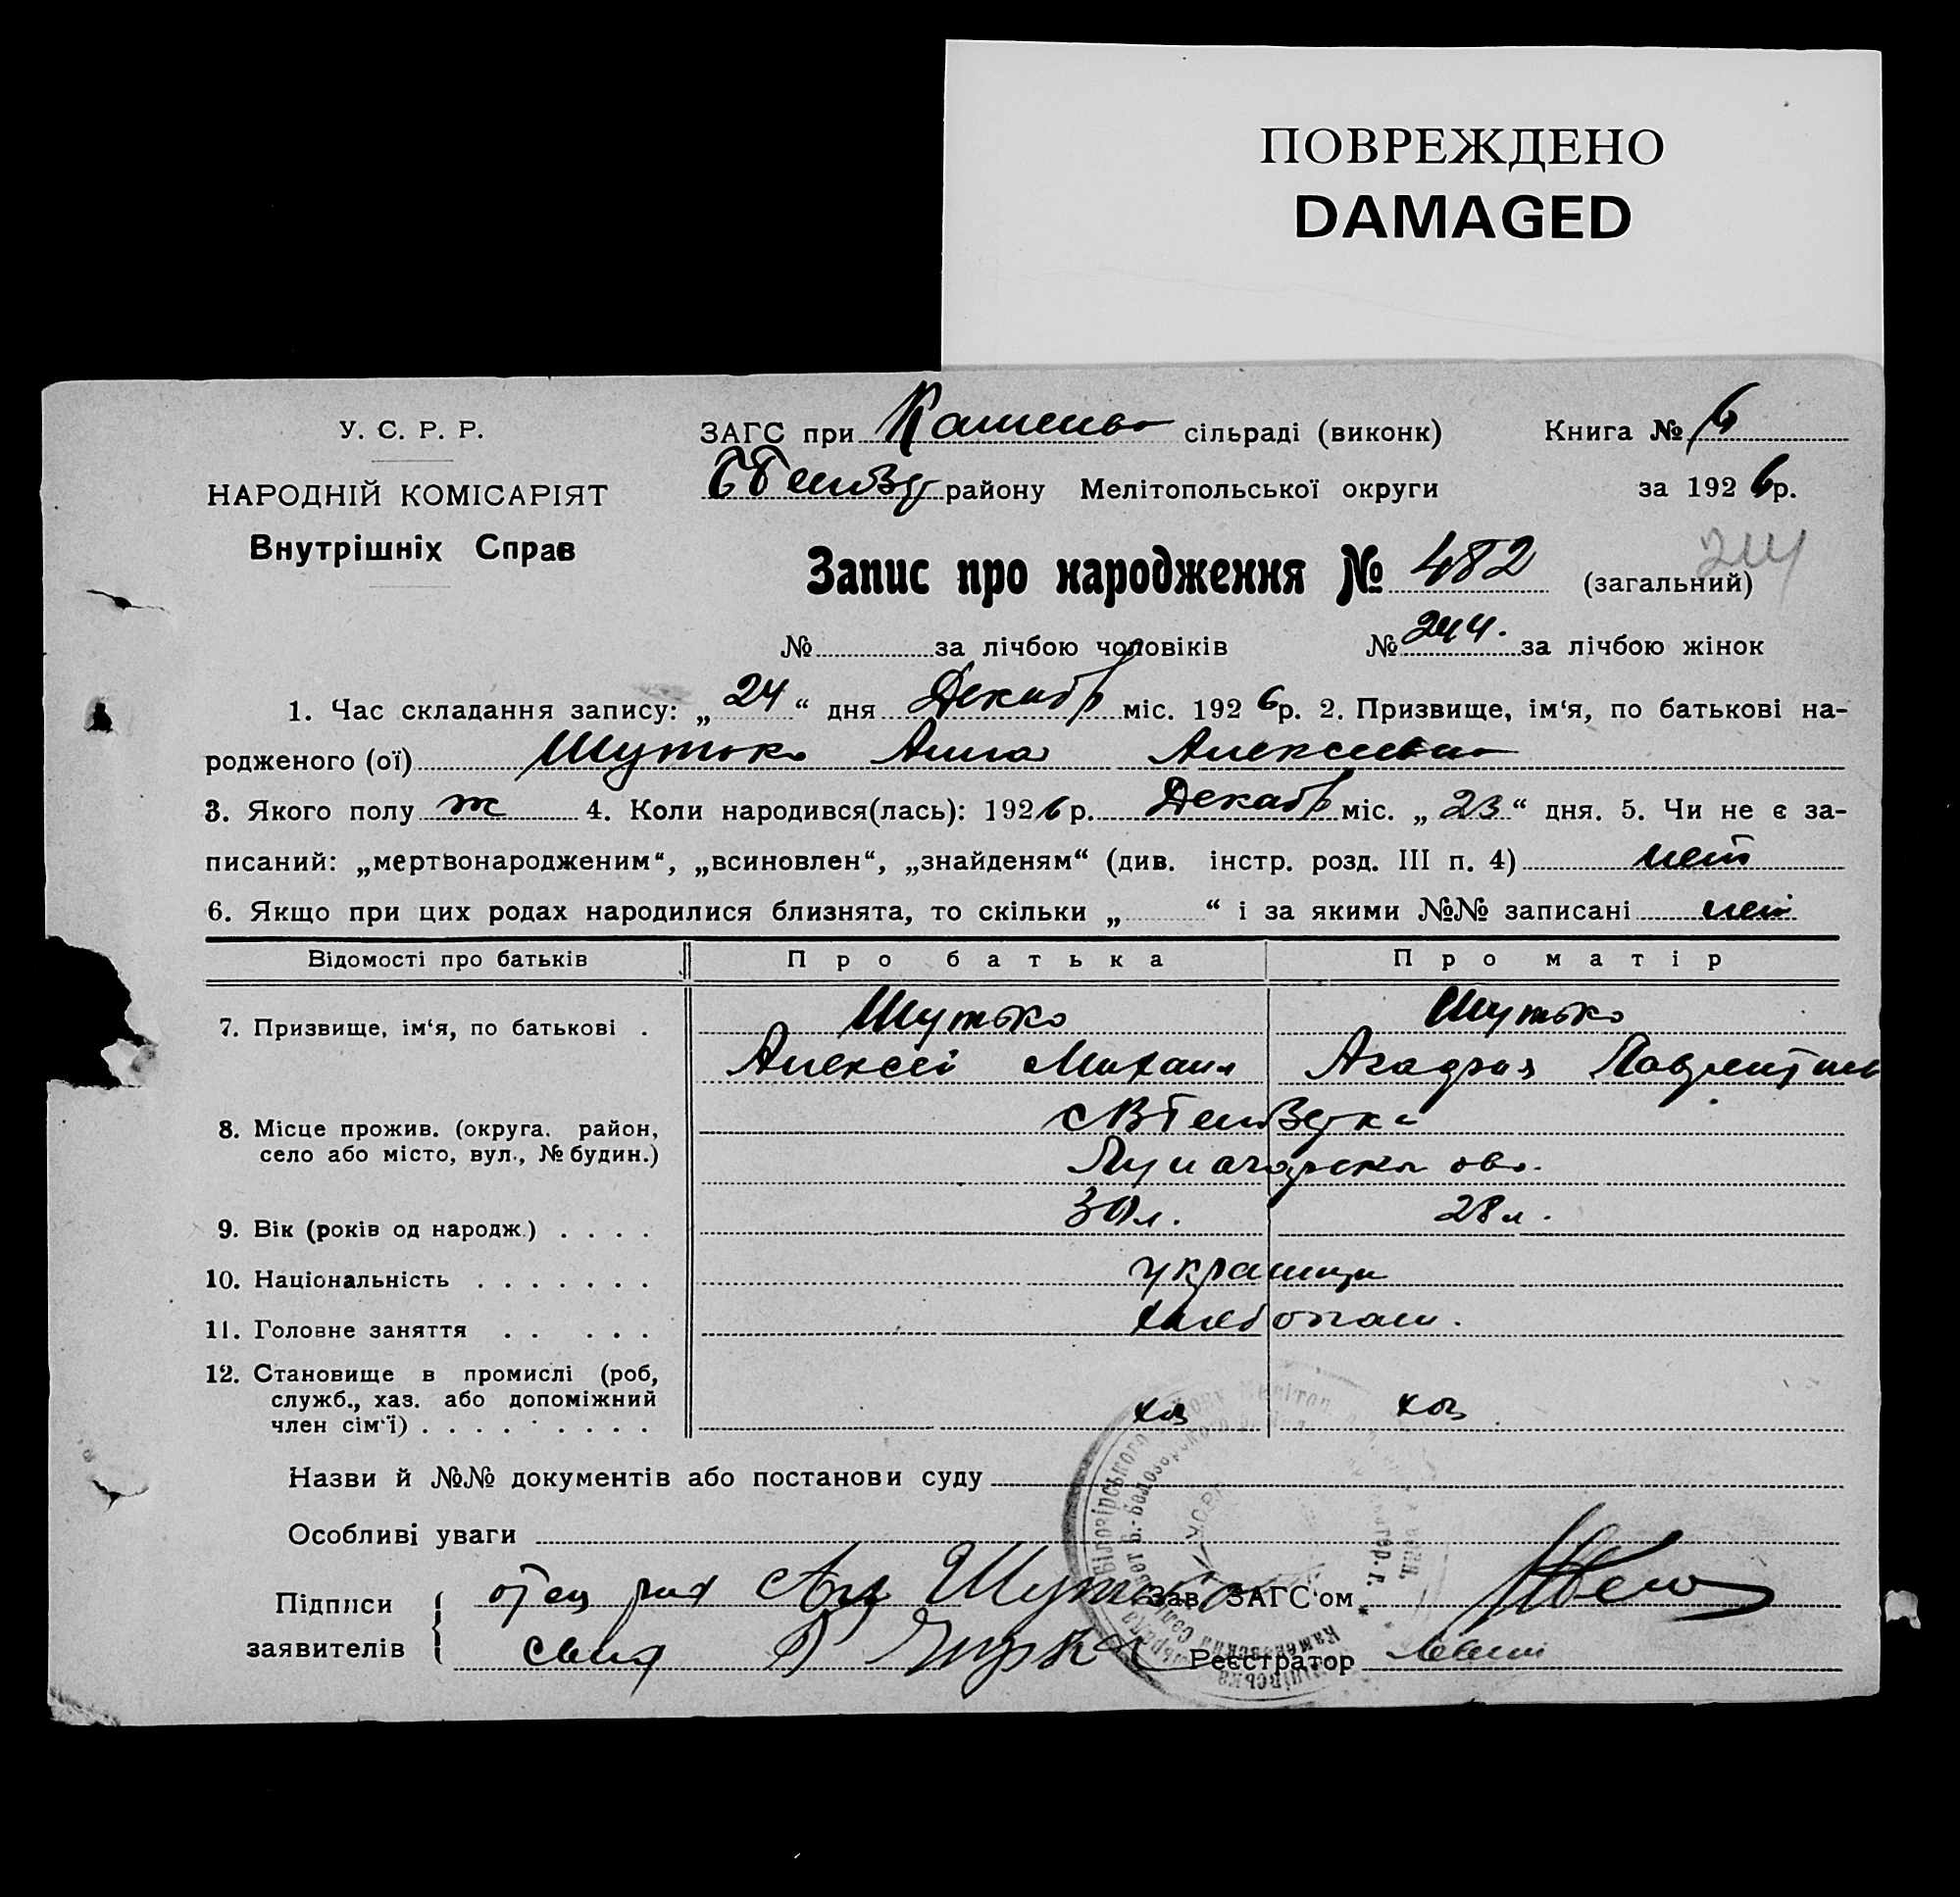 ПОВРЕЖДЕНО
DAMAGED
У. С. Р. Р.
НАРОДНІЙ КОМІСАРІЯТ
Внутрішніх Справ
ЗАГС при сільраді (виконк) Книга № 6
району Мелітопольської округи за 1926р.
Запис про народження № 482 (загальний) 244
№ за лічбою чоловіків № 244. за лічбою жінок
1. Час складання запису: „24“ дня Декабр міс. 1926р. 2. Призвище, ім‘я, по батькові на-
родженого (ої) Шутько Анна Алексеевна
3. Якого полу ж 4. Коли народився(лась): 1926р. Декабр міс. „23“ дня. 5. Чи не є за-
писаний: „мертвонародженим“, „всиновлен“, „знайденям“ (див. інстр. розд. III п. 4) нет
6. Якщо при цих родах народилися близнята, то скільки „ “ і за якими №№ записані нет
Відомості про батьків Про батька Про матір
7. Призвище, ім‘я, по батькові . Шутько Шутько
Алексей Михаил
8. Місце прожив. (округа. район,
село або місто, вул., № будин.)
9. Вік (років од народж.) . . . . 30 л. 28 л.
10. Національність . . . . . . . украинцы
11. Головне заняття . . . . . хлебопаш.
12. Становище в промислі (роб,
служб., хаз. або допоміжний
член сім‘ї) . . . . . . . . хоз хоз
Назви й №№ документів або постанови суду
Особливі уваги
Підписи
заявителів
отец Шутько
Зав. ЗАГС‘ом
Реєстратор